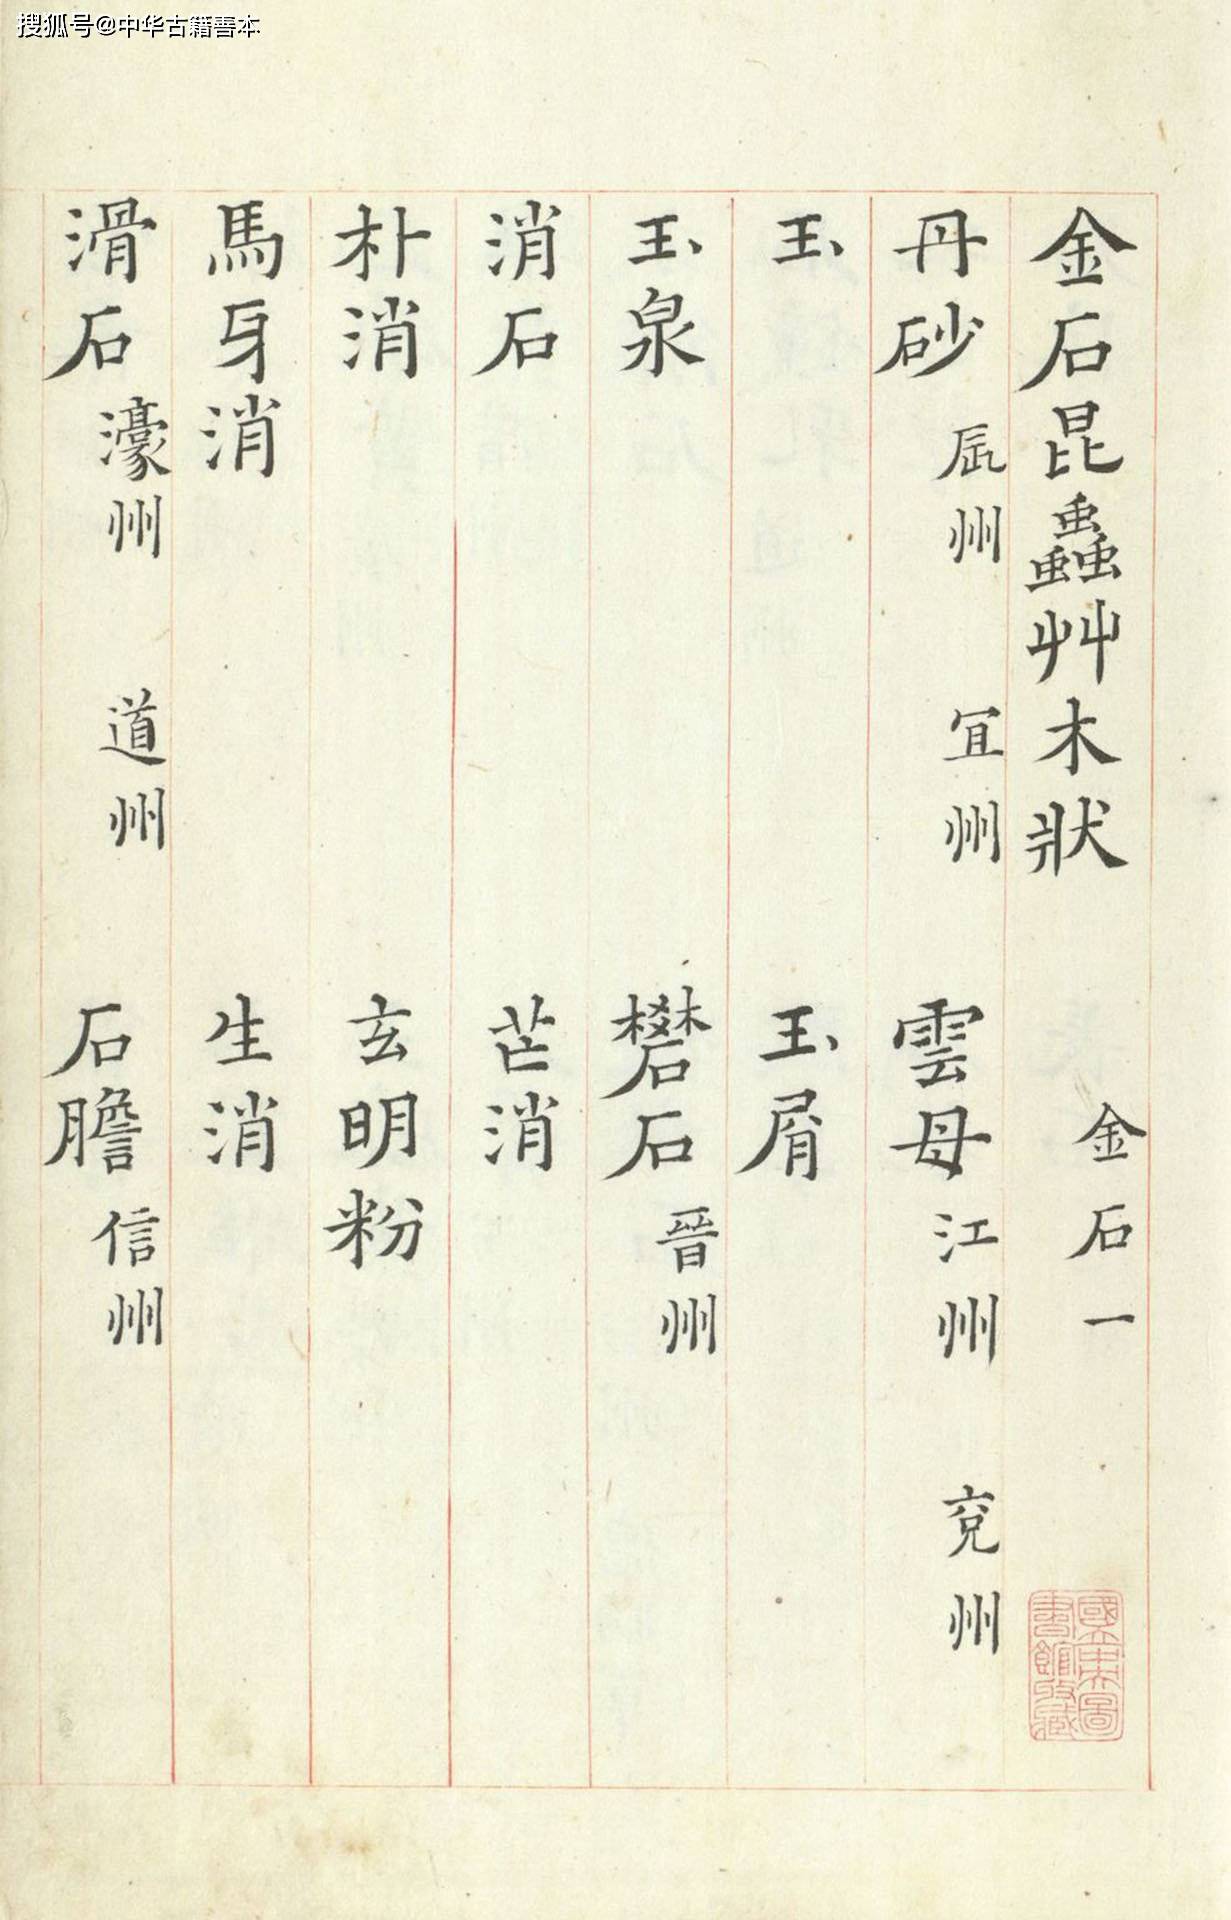 搜狐号@中华古籍善本
金石昆蟲艸木狀 金石一
丹砂 辰州 宜州 雲母 江州 兖州
玉 玉屑
玉泉 礬石 晉州
消石 芒消
朴消 玄明粉
馬牙消 生消
滑石 濠州 道州 石膽 信州
國立中央圖書館收藏